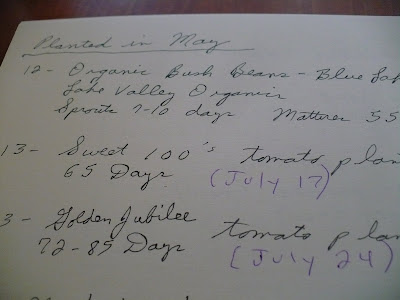 Planted in May
12 - Organic Bush Beans - Blue Lak
Lake Valley Organic
Sprouts 7-10 days Matures 55
13 - Sweet 100's tomato plan
65 Days (July 17)
3 - Golden Jubilee tomato plan
72-85 Days (July 24)